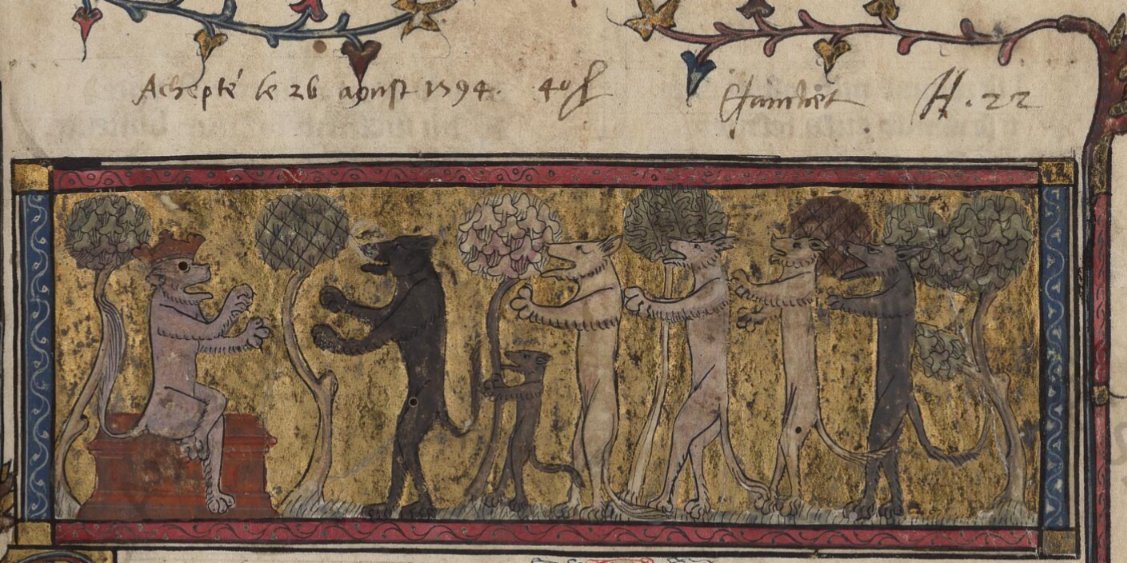 Achepté le 26 aoust 1594. 40 ſ Fauchet H. 22